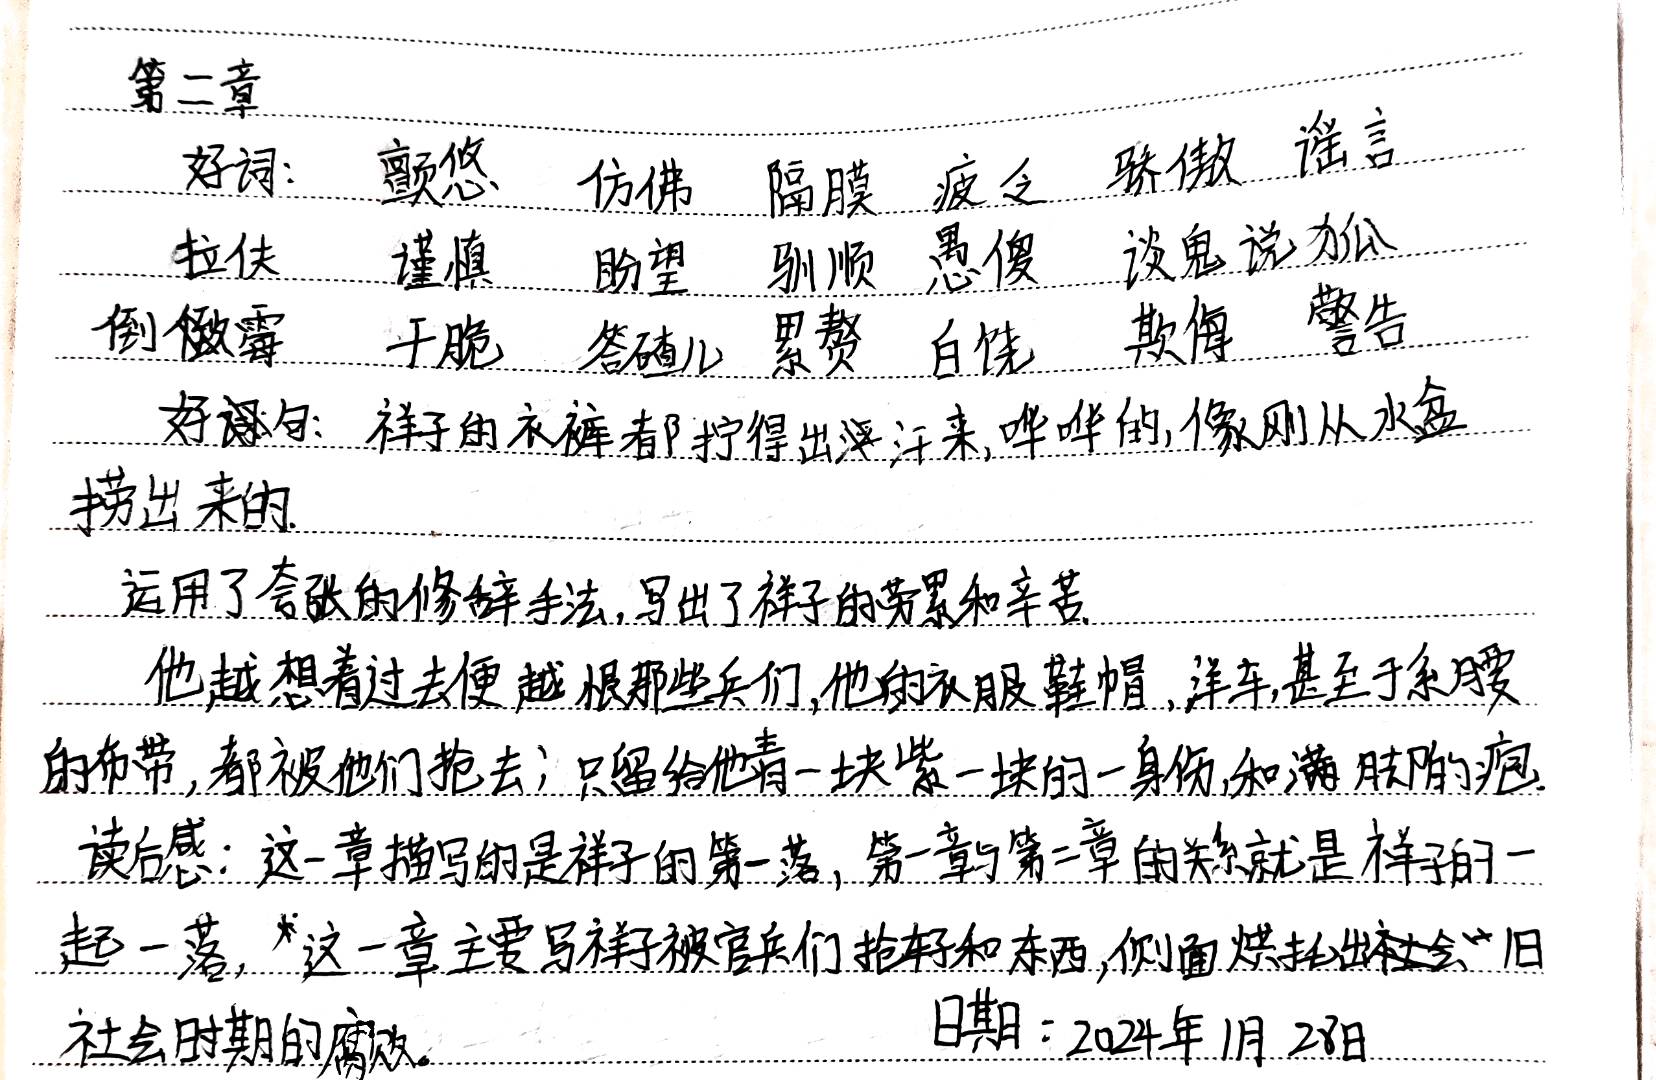 第二章
好词： 颤悠 仿佛 隔膜 疲乏 骄傲 谣言
拉伕 谨慎 盼望 驯顺 愚傻 谈鬼说狐
倒霉 干脆 答碴儿 累赘 白饶 欺侮 警告
好句：祥子的衣裤都拧得出汗来,哗哗的,像刚从水盆
捞出来的.
运用了夸张的修辞手法,写出了祥子的劳累和辛苦.
他越想着过去便越恨那些兵们,他的衣服鞋帽,洋车,甚至于系腰
的布带,都被他们抢去;只留给他青一块紫一块的一身伤,和满脚的疱.
读后感：这一章描写的是祥子的第一落,第一章与第二章的关系就是祥子的一
起一落,这一章主要写祥子被官兵们抢车和东西,侧面烘托出旧
社会时期的腐败。
日期：2024年1月28日